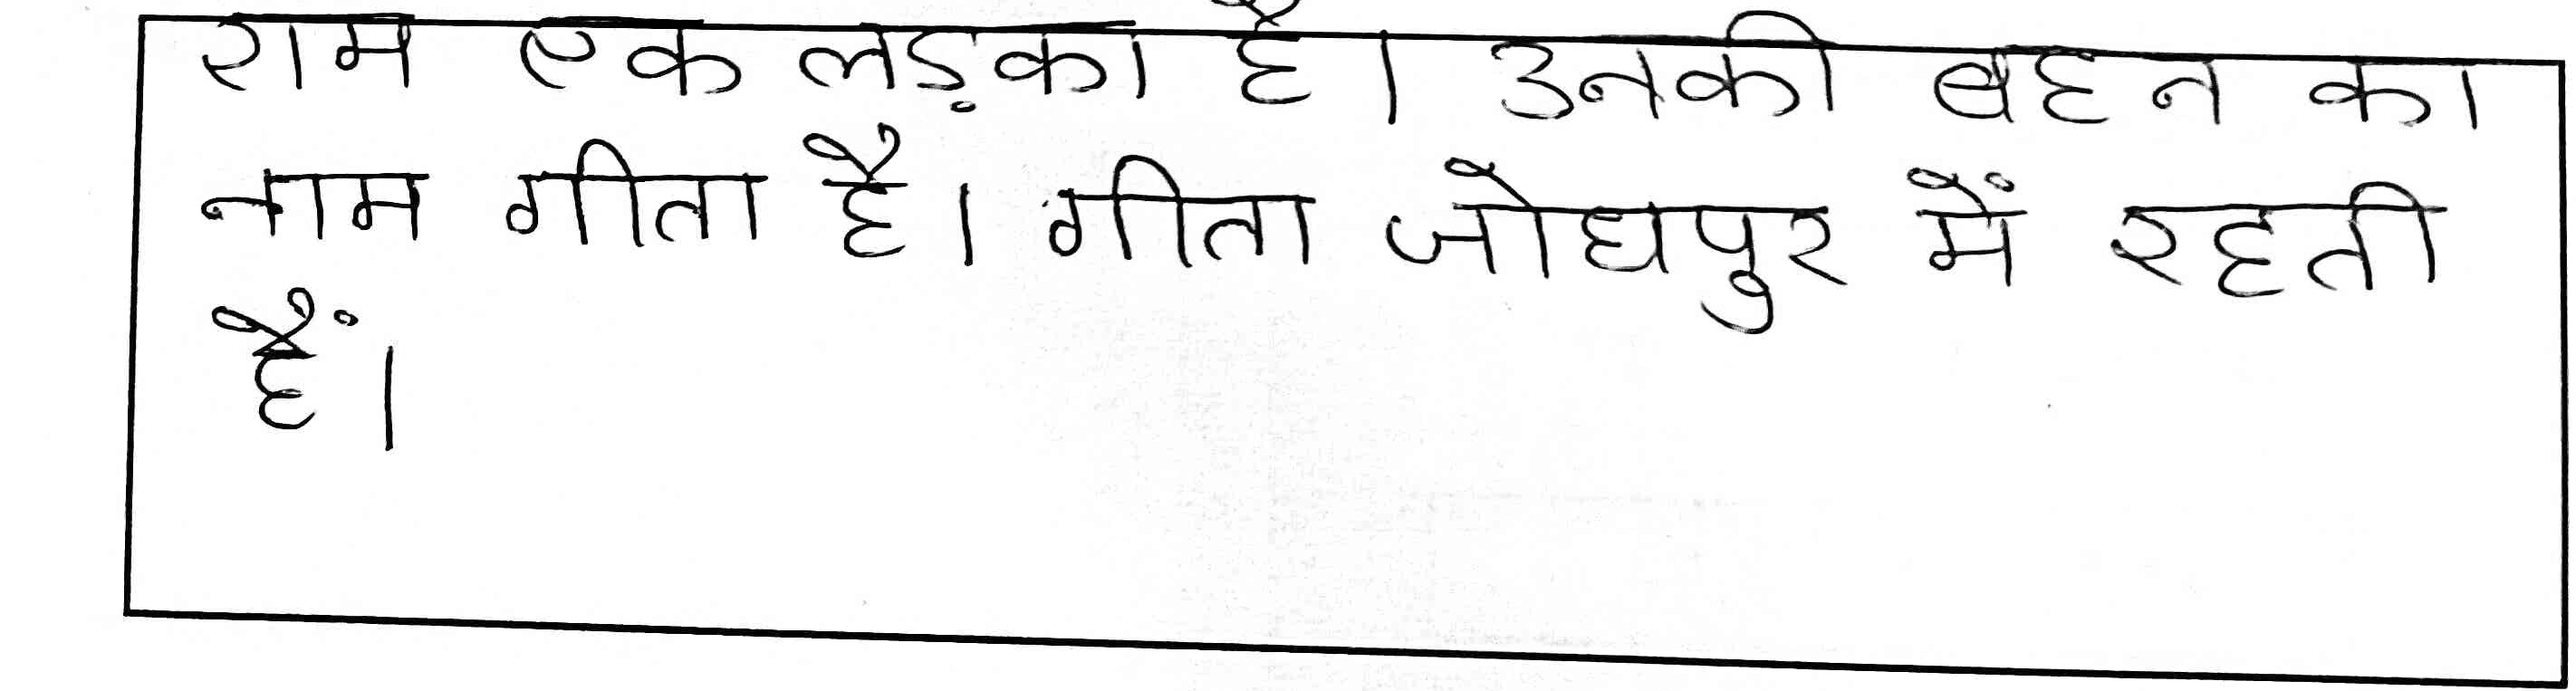 राम एक लड़का है। उनकी बहन का
नाम गीता है। गीता जोधपुर में रहती
हैं।